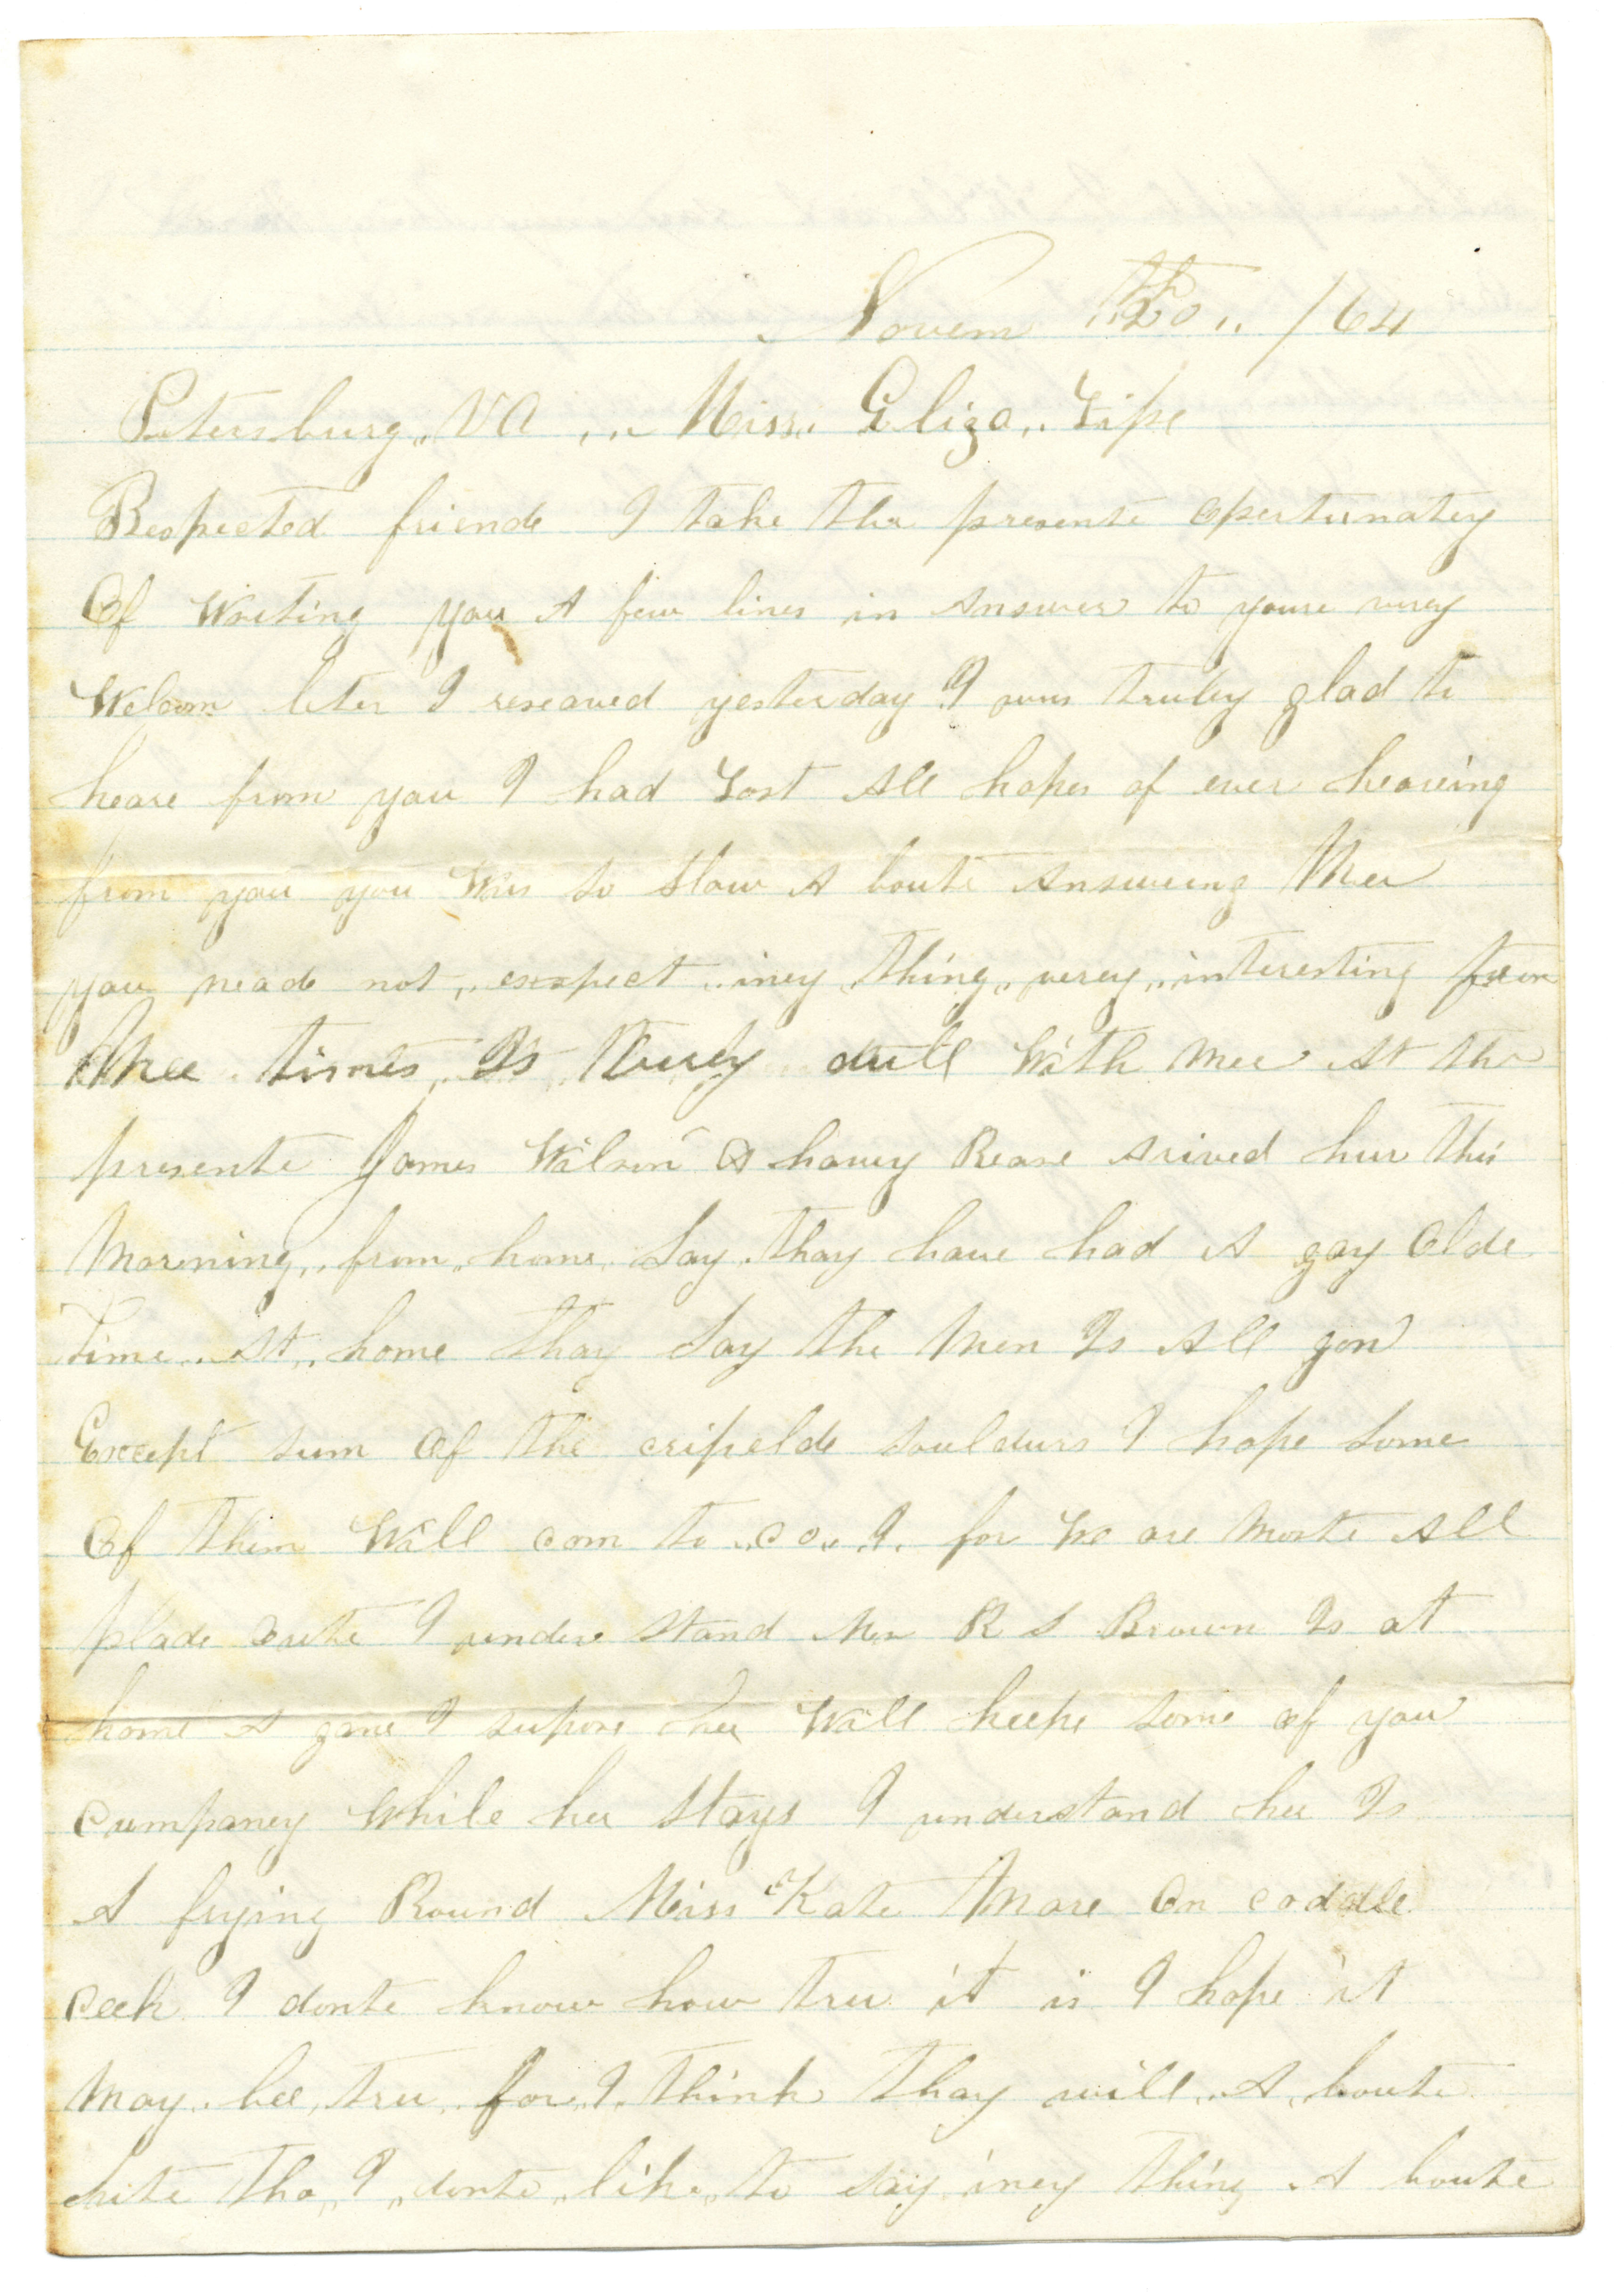 Novem 20th /64
Petersburg, VA Miss. Eliza,. Sipe
Respected friende I take the presente opertunatey
Of Writing you A few lines in Answer to youre verey
Welcom leter I reseaved yesterday I was truley glad to
heare from you I had Lost All hopes of ever heareing
from you you Was so slow A boute Answering Mee
you neade not,. exspect .. iney thing,. verey,. interesting from
Mee times,. Is Verey dull With mee At the
presente James Wilson & harvey Rease Arived hear this
Morning,. from,. home. Say. thay have had A gay Olde
Time... At,. home thay Say the Men Is All gon
Except sum Of the cripelde souldurs I hope some
Of them Will com to ,.co,. I. for We are moste All
plade oute I under stand Mr R S Brown Is at
home A gane I supose hee Will keepe some of you
Cumpaney While hee Stays I understand hee Is
A flying Round Miss Kate More On coddle
Ceek I donte know how true it is I hope it
May. bee,. true,. for,. I. think thay will,. A,. boute
tho,. I,. donte,. like,. to say iney thing A boute